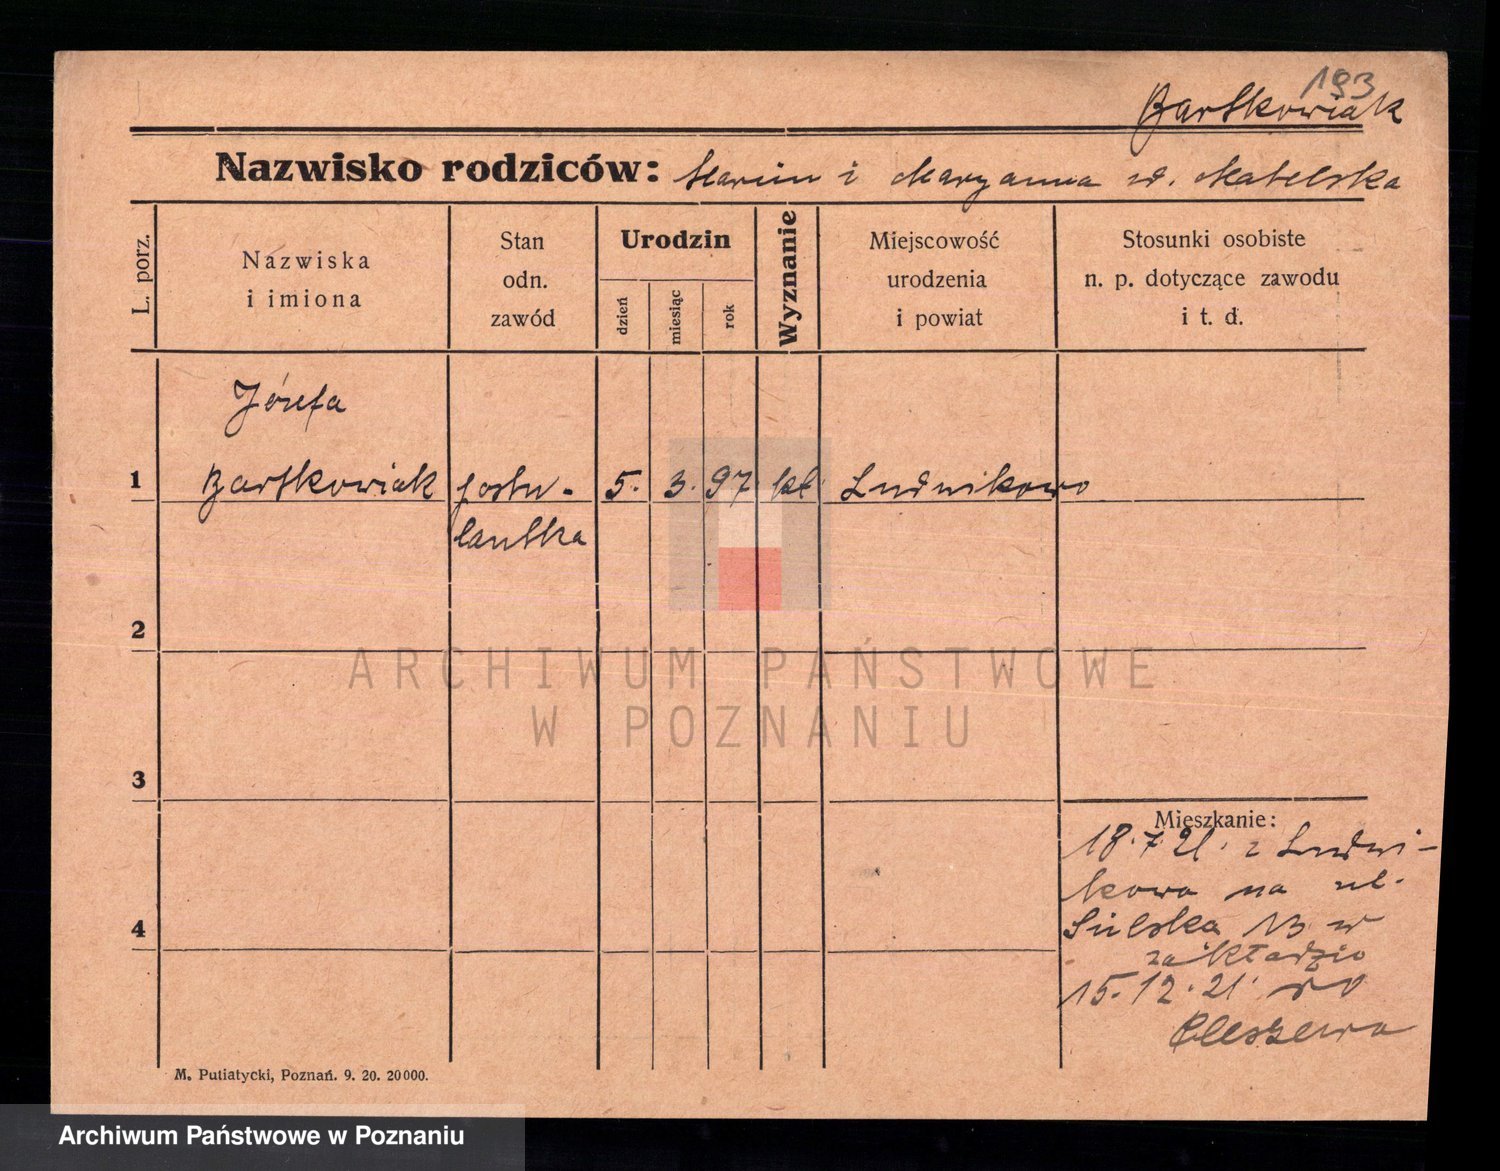 193
Bartkowiak
Nazwisko rodziców: Marcin i Maryanna zd. Matelska
L. porz.
Nazwiska
i imiona
Stan
odn.
zawód
Urodzin
dzień
miesiąc
rok
Wyznanie
Miejscowość
urodzenia
i powiat
Stosunki osobiste
n. p. dotyczące zawodu
i t. d.
Józefa
1 Bartkowiak postu- 5. 3. 97 kt. Ludwikowo
lantka
2
3
4
Mieszkanie:
18.7.21. z Ludwi-
kowa na ul.
13 w
zakładzie
15.12.21. do
Pleszewa
M. Putiatycki, Poznań. 9. 20. 20000.
ARCHIWUM PAŃSTWOWE
W POZNANIU
Archiwum Państwowe w Poznaniu